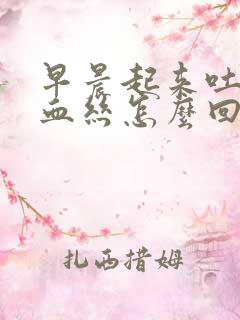 早晨起来吐
血丝怎麼回
扎西措姆